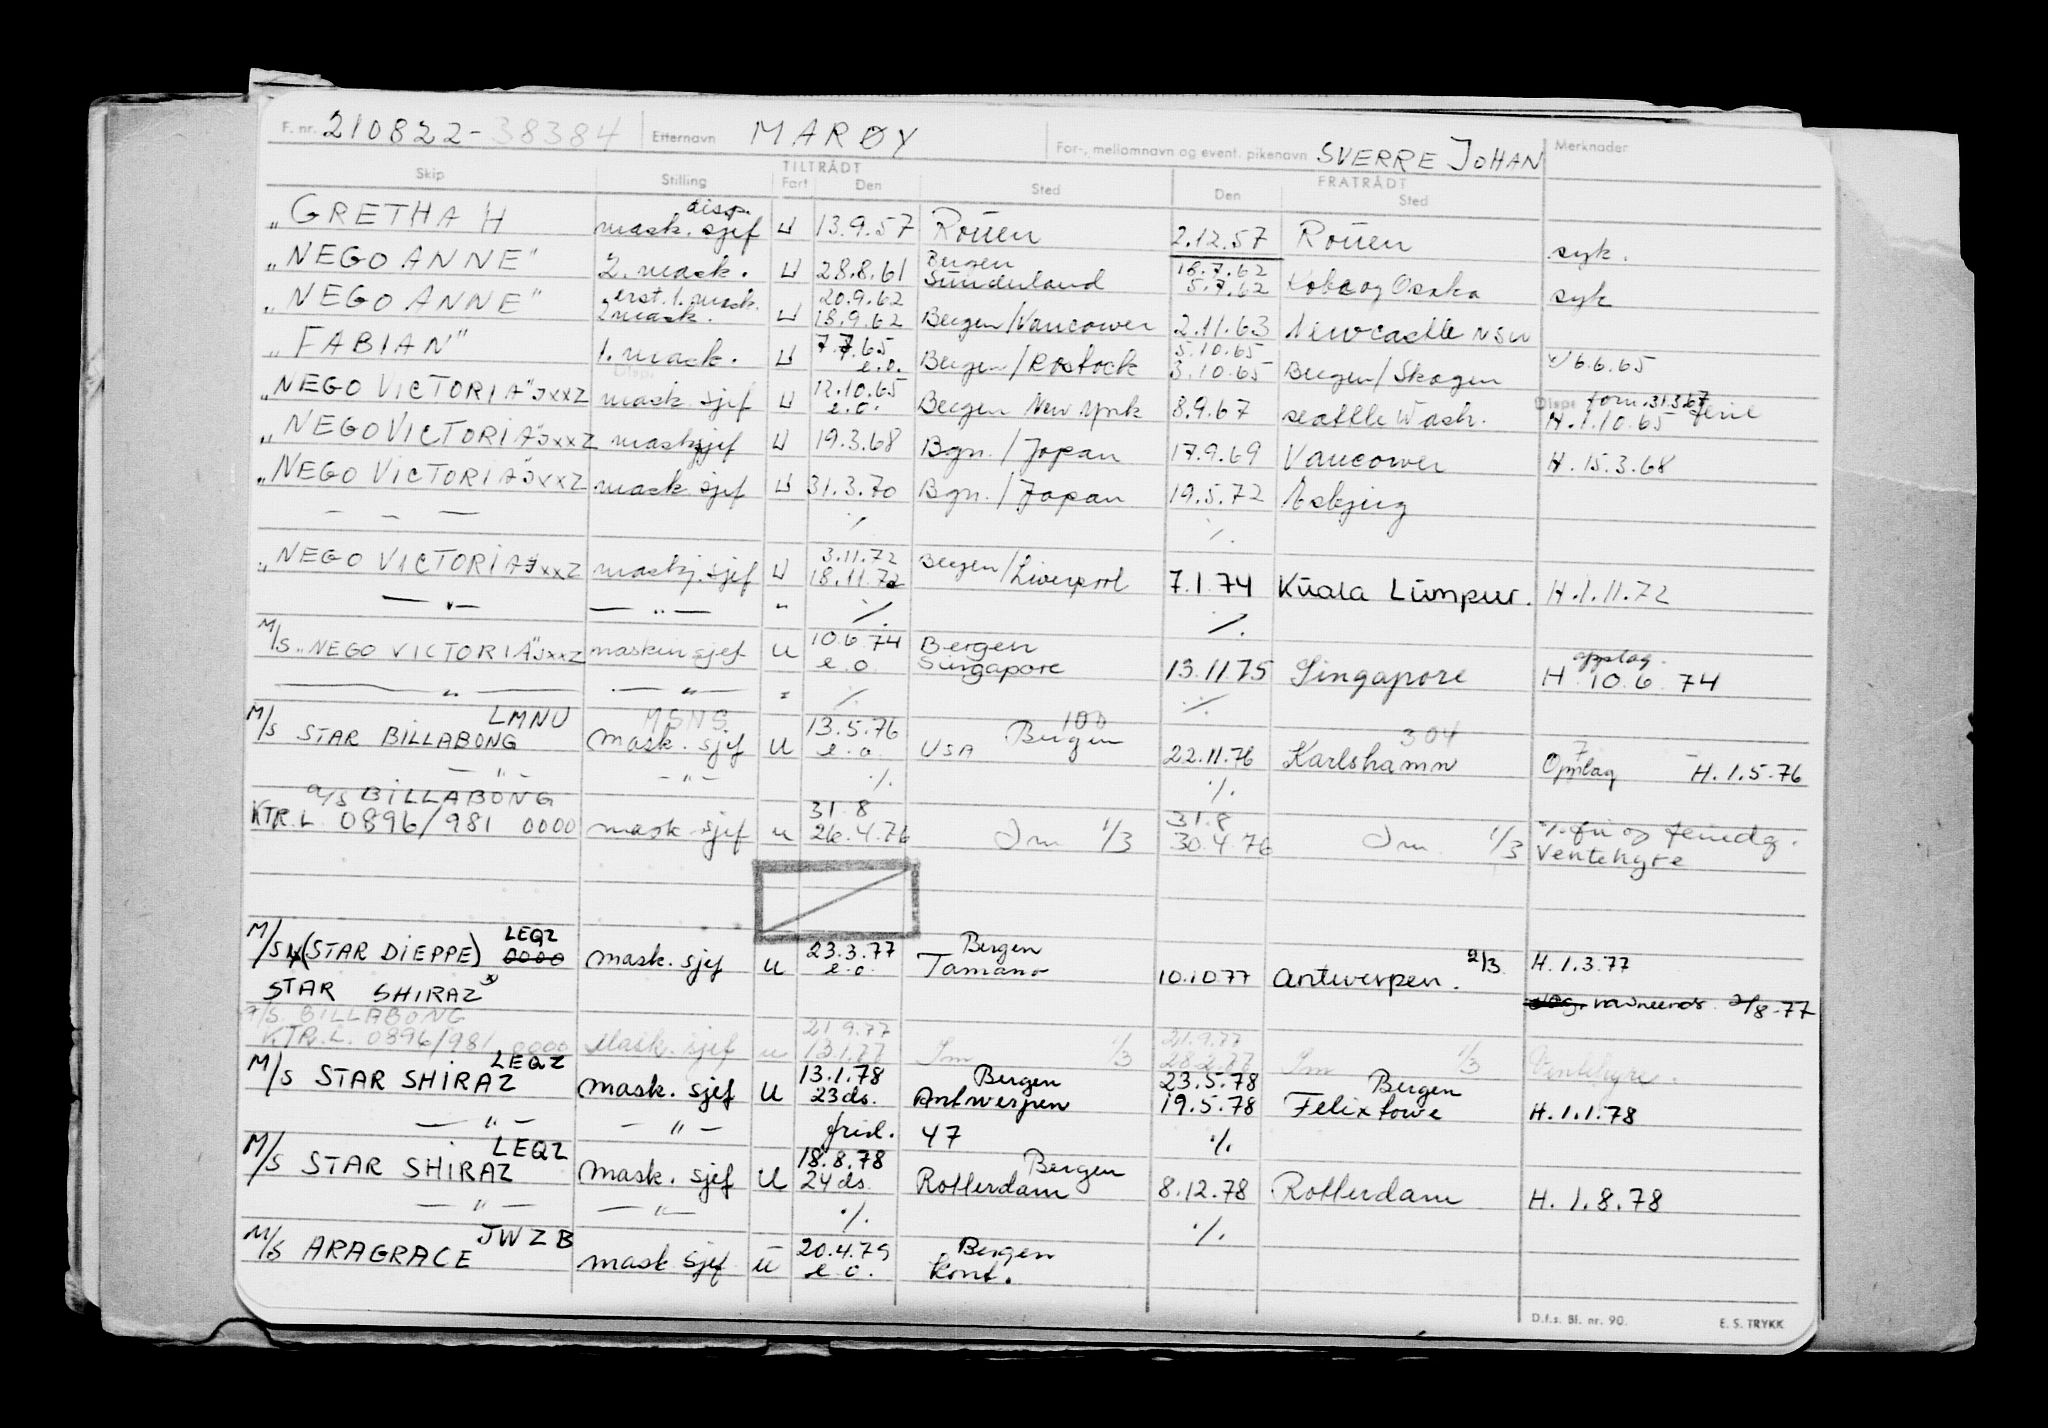 F. nr. 210822-38384 Etternavn MARØY For-, mellomnavn og event. pikenavn SVERRE JOHAN Merknader
TILTRÅDT FRATRÅDT
Skip Stilling Fart Den Sted Den Sted
disp.
"GRETHA H mask. sjef U 13.9.57 Rouen 2.12.57 Rouen syk.
Bergen 18.7.62
"NEGO ANNE" 2. mask. U 28.8.61 Sunderland 5.7.62 Kobe og Osaka syk
erst. 1. mask. 20.9.62
"NEGO ANNE" 2 mask. U 18.9.62 Bergen/Vancouver 2.11.63 Newcastle NSW
7.7.65 5.10.65
"FABIAN" 1. mask. U e.o. Bergen/Rostock 3.10.65 Bergen/Skagen 6.6.65
Disp. 12.10.65 Disp. forn. 31.3.67
"NEGO VICTORIA" JXXZ mask. sjef U e.o. Bergen New York 8.9.67 seattle Wash. H.1.10.65 ferie
"NEGO VICTORIA" JXXZ masksjef U 19.3.68 Bgn./Japan 17.9.69 Vancouver H.15.3.68
"NEGO VICTORIA" JXXZ mask. sjef U 31.3.70 Bgn./Japan 19.5.72 Esbjerg
— — — ./. ./.
3.11.72
"NEGO VICTORIA" JXXZ maskj. sjef U 18.11.72 Bergen/Liverpool 7.1.74 Kuala Lumpur. H.1.11.72
— " — — " — " ./. ./.
10.6.74 Bergen opplag.
M/S "NEGO VICTORIA" JXXZ maskin sjef U e.o. Singapore 13.11.75 Singapore H 10.6.74
— " — — " — " ./. ./.
LMNU MSNS 13.5.76 100 Bergen 304 7
M/S STAR BILLABONG mask. sjef U e.o. USA 22.11.76 Karlshamn Opplag H.1.5.76
— " — — " — ./. ./.
a/s BILLABONG 31.8 31.8
KTR.L. 0896/981 0000 mask sjef u 26.4.76 Im 1/3 30.4.76 Im 1/3 Ventehyre
LEQZ 23.3.77 Bergen
M/S (STAR DIEPPE) 0000 mask. sjef U e.o. Tamano 10.10.77 Antwerpen. 2/3 H.1.3.77
STAR SHIRAZ 2/8-77
a/s. BILLABONG 21.9.77 21.9.77
KTR.L. 0896/981 0000 Mask. sjef u 13.1.77 Im 1/3 28.2.77 Im 1/3 Ventehyre.
LEQZ 13.1.78 Bergen 23.5.78 Bergen
M/S STAR SHIRAZ mask. sjef U 23 ds. Antwerpen 19.5.78 Felixtowe H.1.1.78
— " — — " — frid. 47 ./.
LEQZ 18.8.78 Bergen
M/S STAR SHIRAZ mask. sjef U 24 ds. Rotterdam 8.12.78 Rotterdam H.1.8.78
— " — — " — ./. ./.
JWZB 20.4.79 Bergen
M/S ARAGRACE mask sjef U e.o. Kont.
D.f.s. Bl. nr. 90. E. S. TRYKK